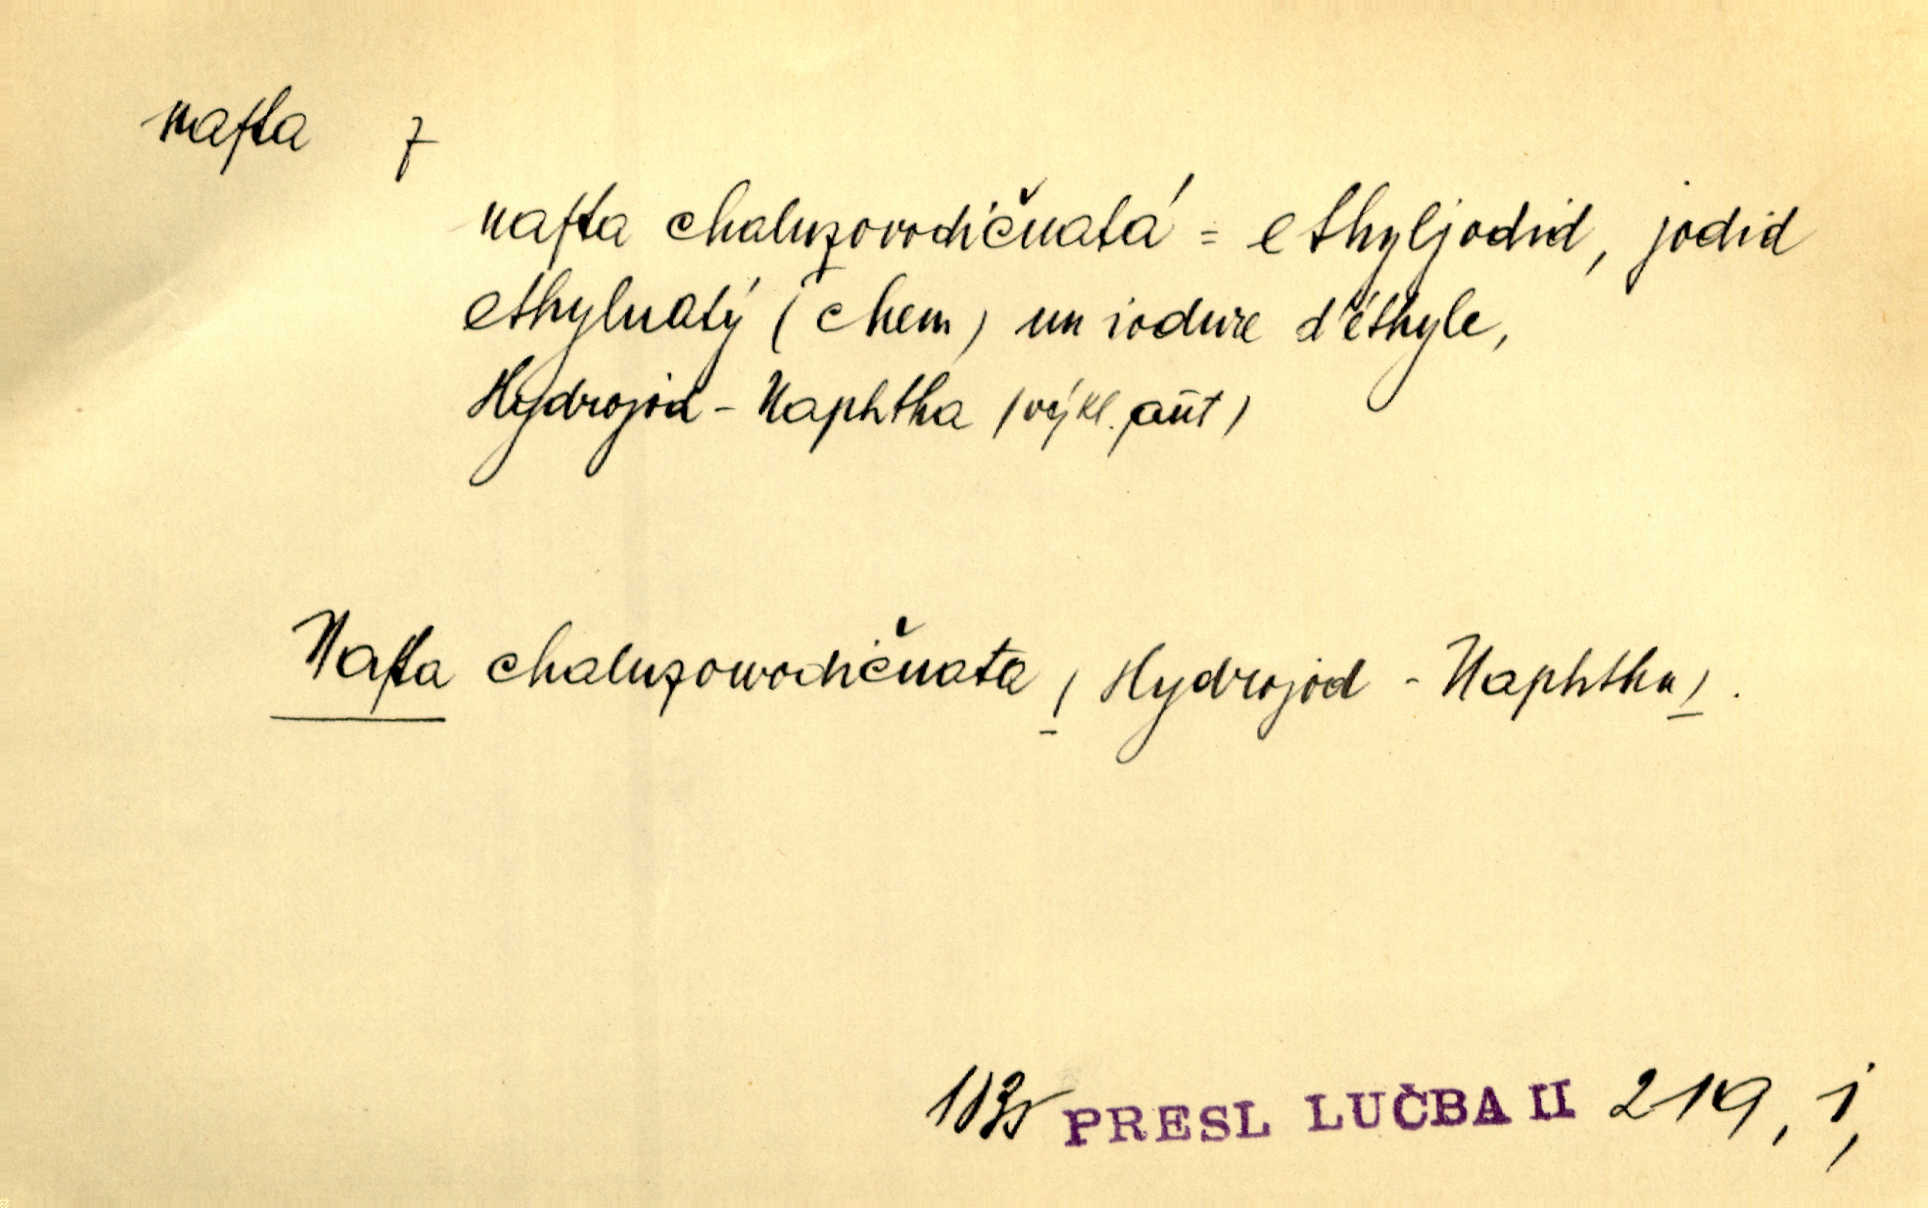 nafta f
nafta chaluzovodičnatá = ethyljodid, jodid
ethylnatý (chem) un iodure d'éthyle,
Hydrojod - Naphtha (výkl. aut)
Nafta chaluzowodičnatá (Hydrojod - Naphtha).
1835 PRESL LUČBA II 219, i,